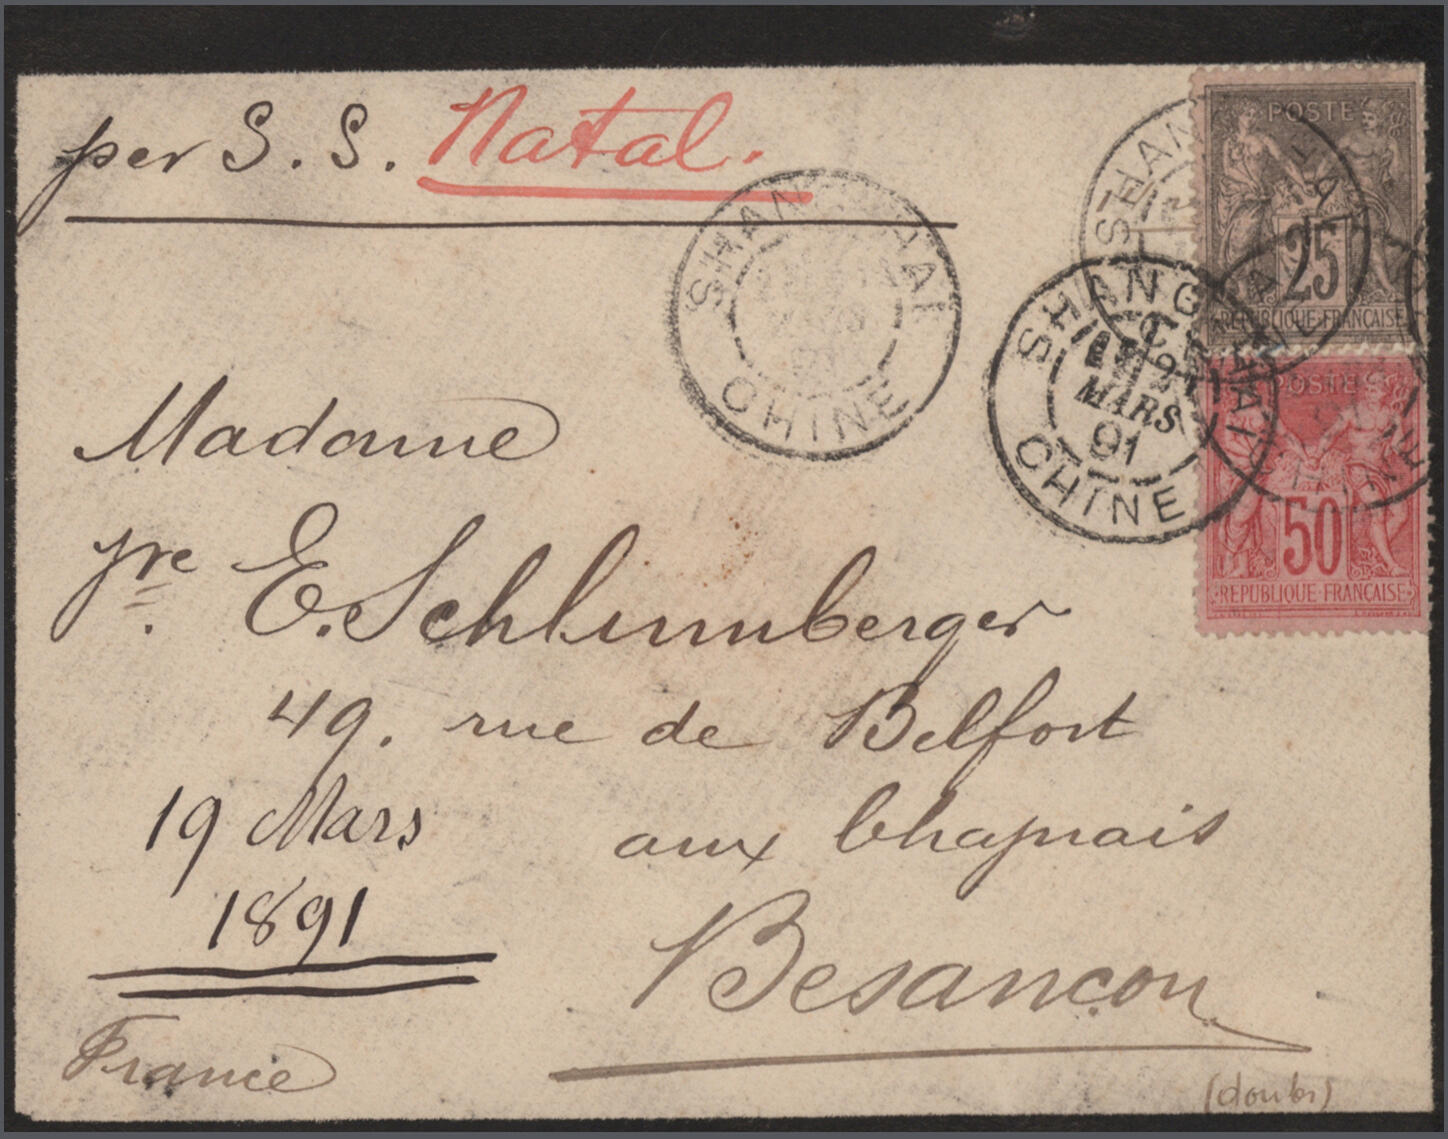 per S. S. Natal.
SHANG-HAI
MARS
CHINE
SHANG-HAI
SHANG-HAI
MARS
91
CHINE
CHINE
POSTE
25
REPUBLIQUE FRANÇAISE
POSTE
50
REPUBLIQUE FRANÇAISE
Madame
E. Schlumberger
49. rue de Belfort
19 Mars
aux Chaprais
1891
Besançon
France
(doubs)